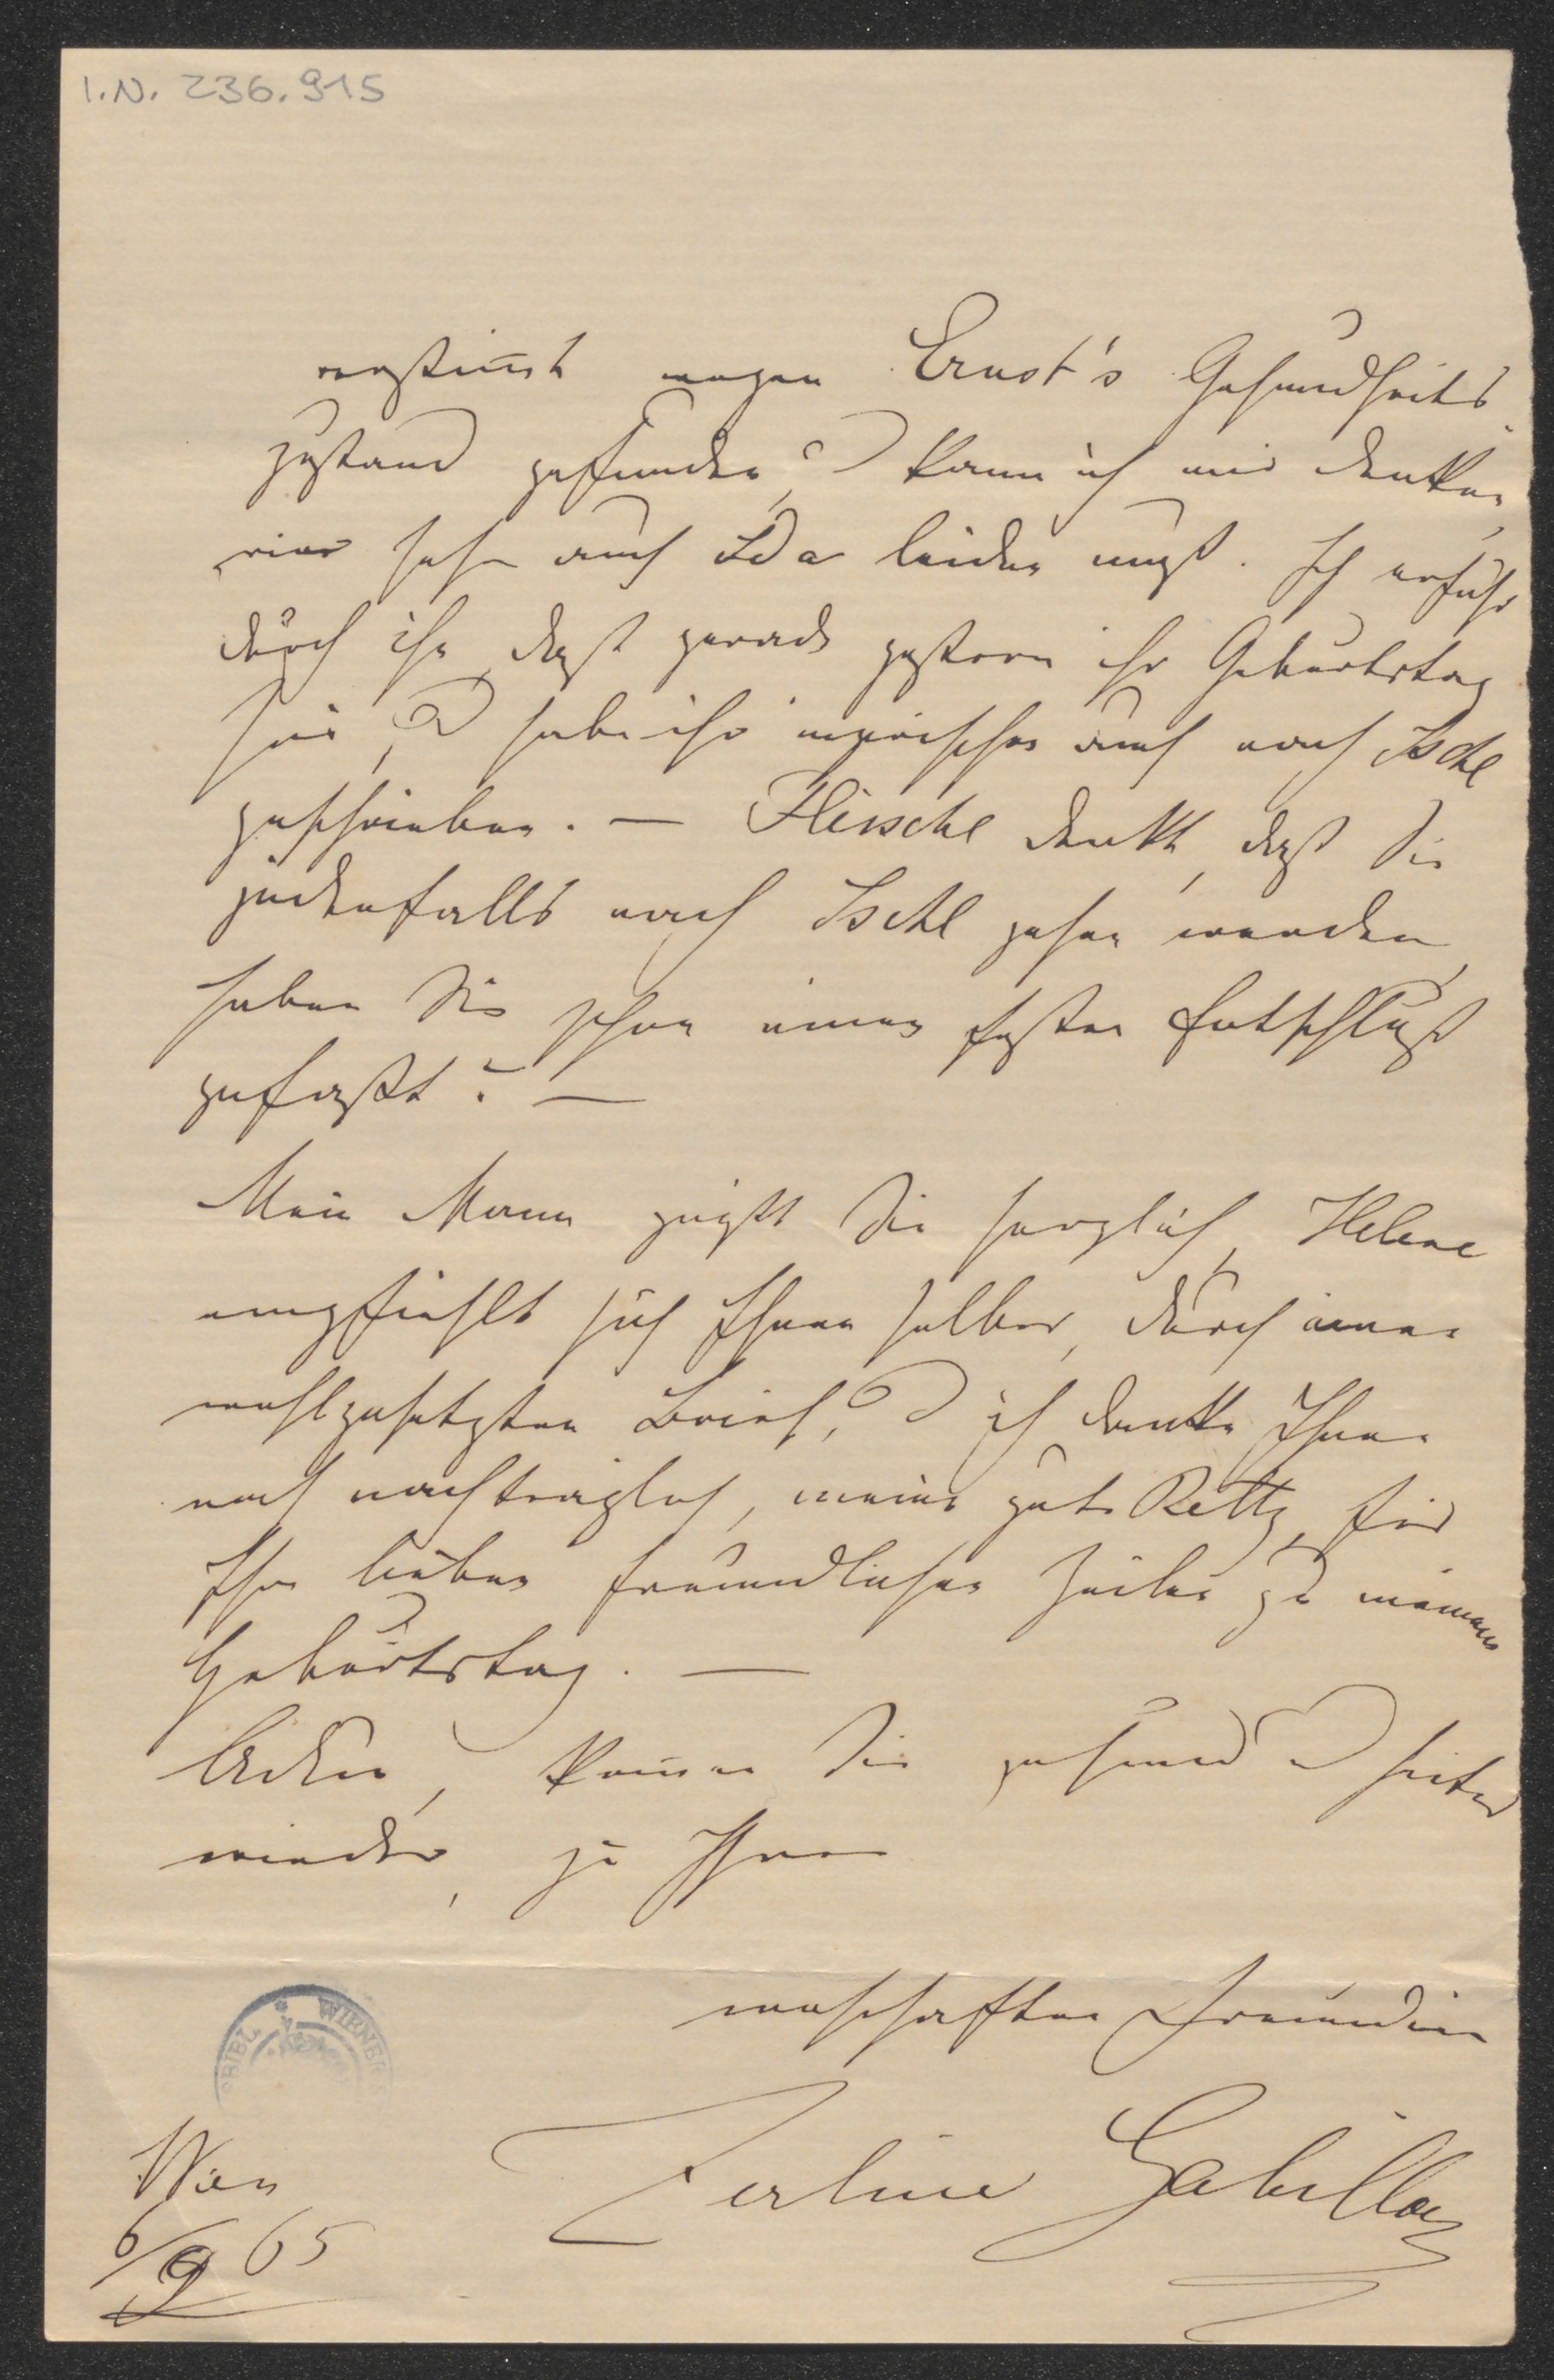 I.N. 236.915
verstimt wegen Ernst's Gesundheits
zustand gefunden, u kann ich mir denken,
wie sehr auch Ida leiden muß. Ich erfuhr
durch ihn, daß gerade gestern ihr Geburtstag
sei, u habe ihr inzwischen auch nach Ischl
geschrieben. — denkt, daß Sie
jedenfalls nach Ischl gehen werden,
haben Sie schon einen festen Entschluß
gefaßt? —
Mein Mann grüßt Sie herzlich, Helene
empfiehlt sich Ihnen selber, durch einen
wohlgesetzten Brief, u ich danke Ihnen
noch nachträglich, meine gute Retty, für
Ihre lieben freundlichen Zeilen zu meinem
Geburtstag. —
Adieu, kommen Sie gesund u heiter
wieder, zu Ihrer
wahrhaften Freundin
Zerline Gabillon
Wien
6/9 65
BIBL * WIENER